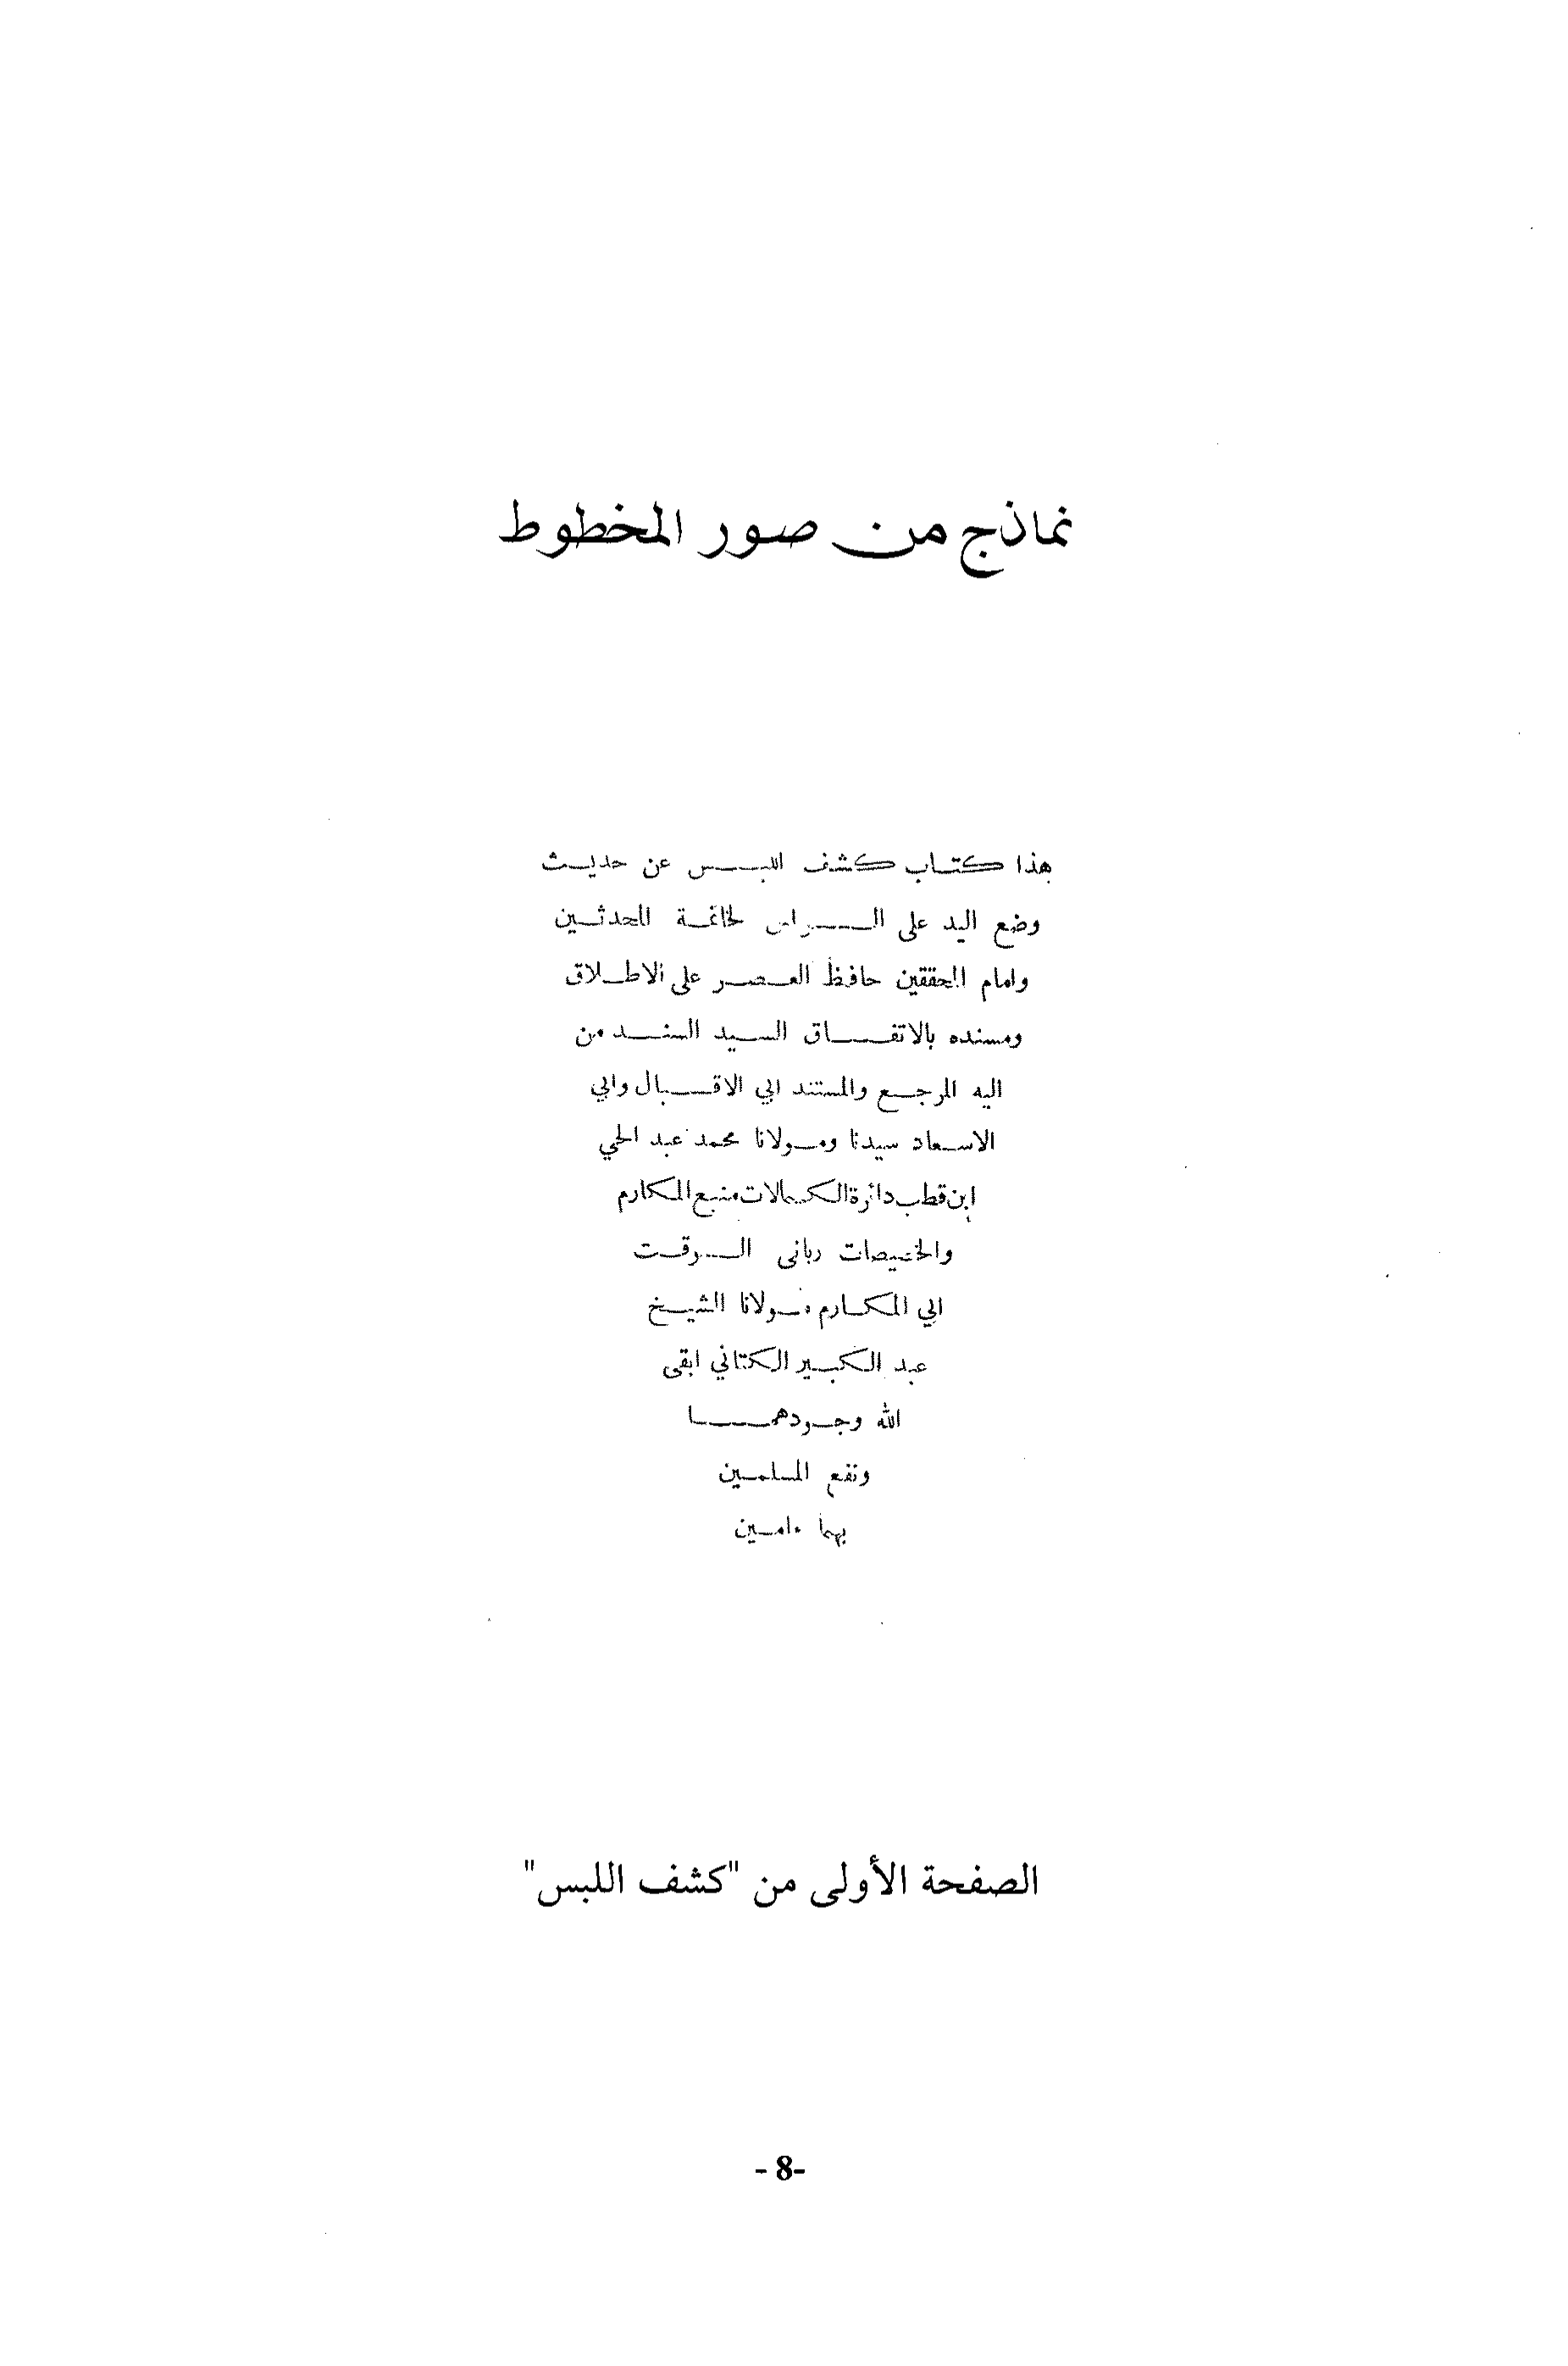 نماذج من صور المخطوط
هذا كتاب كشف اللبس عن حديث
وضع اليد على الراس لخاتمة المحدثين
وامام المحققين حافظ العصر على الاطلاق
ومسنده بالاتفاق السيد السند من
اليه المرجع والمستند ابي الاقبال وابي
الاسعاد سيدنا ومولانا محمد عبد الحي
ابن قطب دائرة الكمالات منبع المكارم
والخصيصات رباني الوقت
ابي المكارم مولانا الشيخ
عبد الكبير الكتاني ابقى
الله وجودهما
ونفع المسلمين
بهما ءامين
الصفحة الأولى من "كشف اللبس"
- 8-